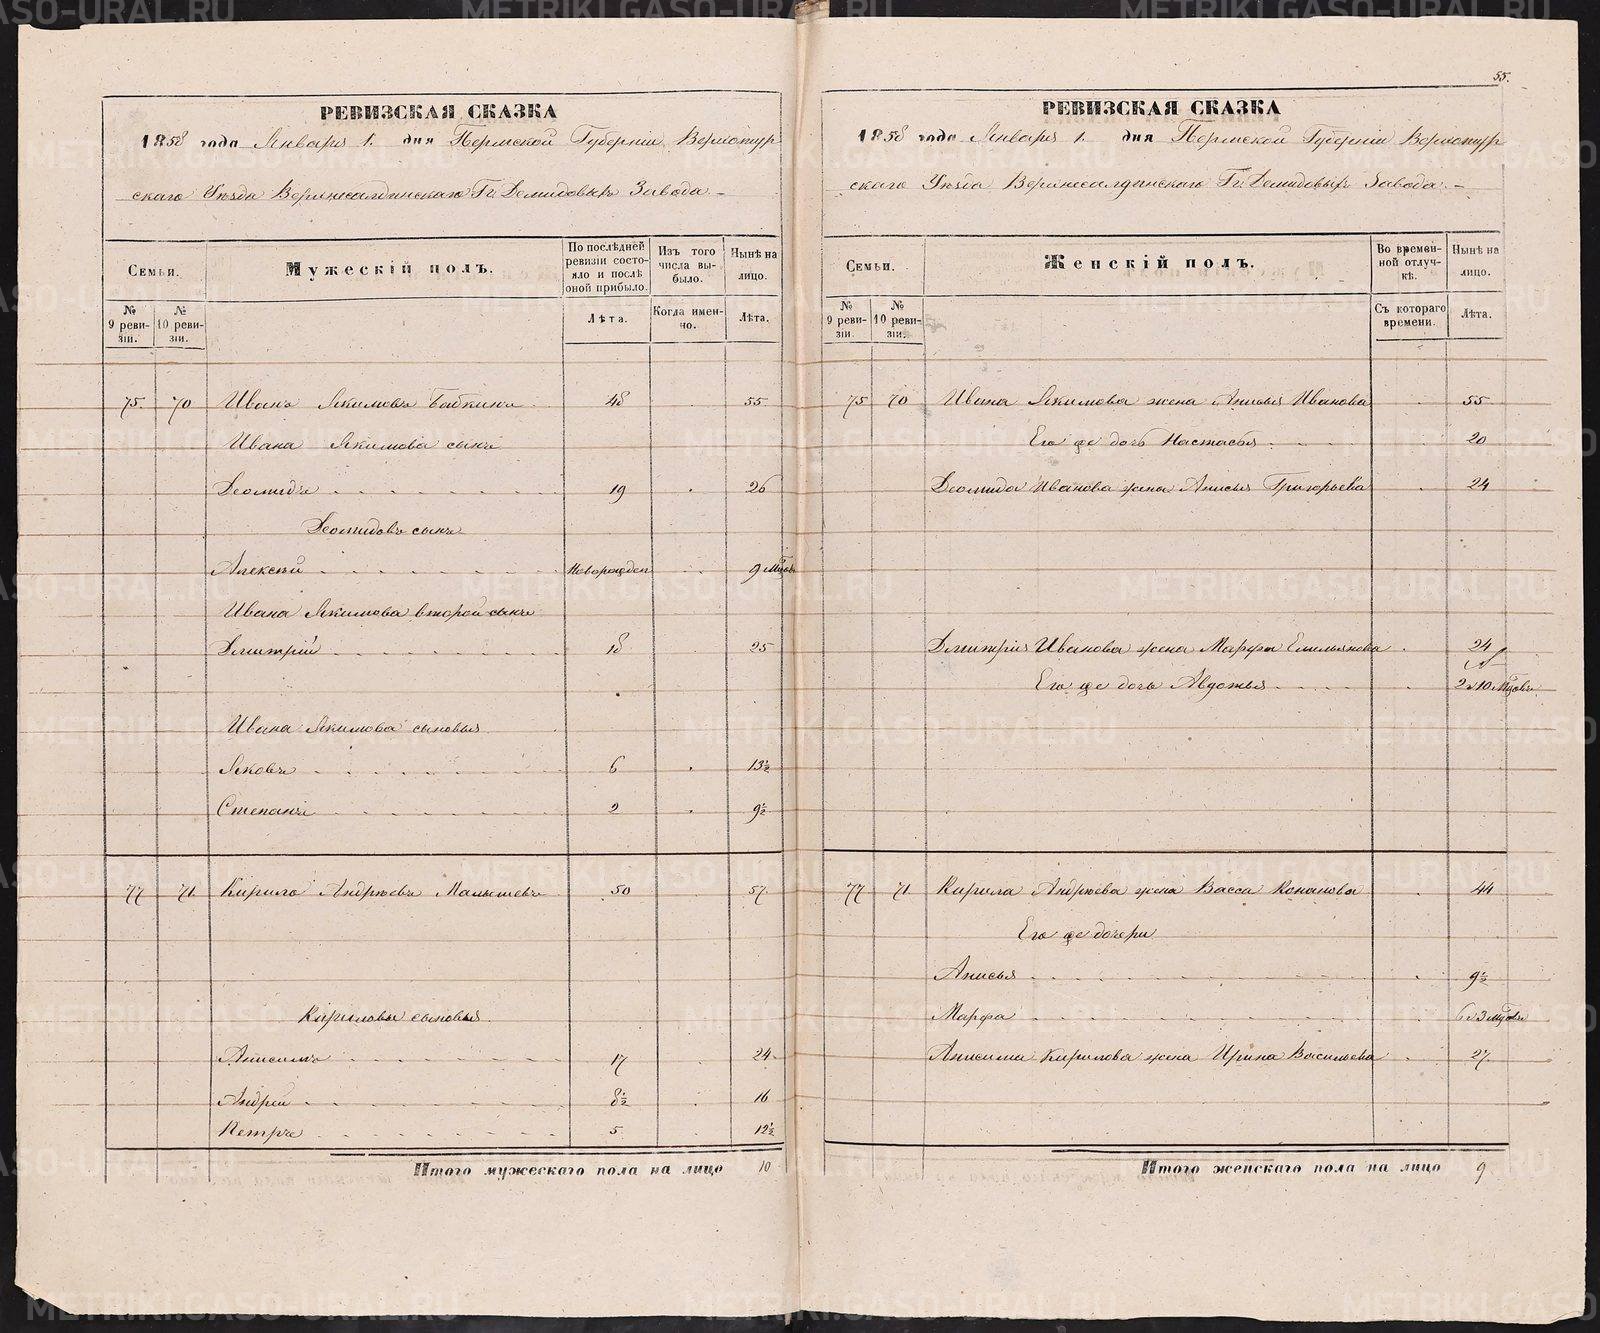 РЕВИЗСКАЯ СКАЗКА
1858 года Января 1. дня Пермской Губерніи Верхотур
скаго Уѣзда Верхнесалдинскаго Гг. Демидовыхъ Завода
Семьи.
Мужескій полъ.
По послѣдней ревизіи состояло и послѣ оной прибыло.
Изъ того числа выбыло.
Нынѣ на лицо.
№ 9 ревизіи.
№ 10 ревизіи.
Лѣта.
Когда именно.
Лѣта.
75. 70 Иванъ Якимовъ Бабкинъ 48 55
Ивана Якимова сынъ
Деомидъ 19 26
Деомидовъ сынъ
Алексѣй Новорожден 9 Мцовъ
Ивана Якимова второй сынъ
Дмитрій 18 25
Ивана Якимова сыновья
Яковъ 6 13½
Степанъ 2 9½
77 71. Кирило Андреевъ Малышевъ 50 57.
Кириловы сыновья
Анисимъ 17 24
Андрей 8½ 16
Петръ 5 12½
Итого мужескаго пола на лицо 10
55.
РЕВИЗСКАЯ СКАЗКА
1858 года Января 1. дня Пермской Губерніи Верхотур
скаго Уѣзда Верхнесалдинскаго Гг. Демидовыхъ Завода
Семьи.
Женскій полъ.
Во временной отлучкѣ.
Нынѣ на лицо.
№ 9 ревизіи.
№ 10 ревизіи.
Съ котораго времени.
Лѣта.
75 70 Ивана Якимова жена Анисья Иванова 55
Его же дочь Настасья 20
Деомида Иванова жена Анисья Григорьева 24
Дмитрія Иванова жена Марфа Емельянова 24
Его же дочь Авдотья 2 и 10 Мцовъ
77 71 Кирила Андреева жена Васса Кононова 44
Его же дочери
Анисья 9½
Марфа 6 и 3 Мцовъ
Анисима Кирилова жена Ирина Васильева 27
Итого женскаго пола на лицо 9
METRIKI.GASO-URAL.RU